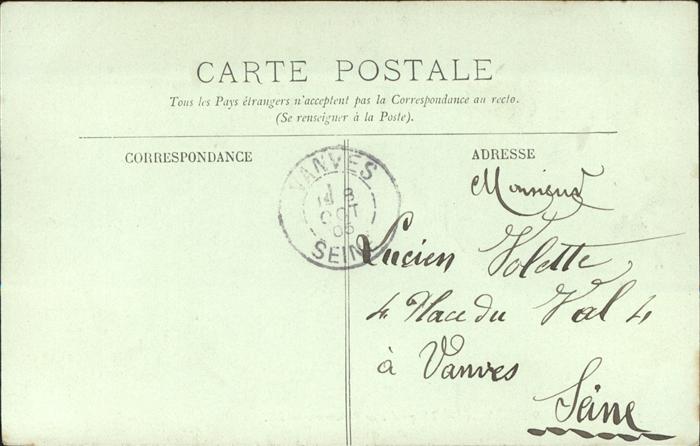 CARTE POSTALE
Tous les Pays étrangers n'acceptent pas la Correspondance au recto.
(Se renseigner à la Poste).
CORRESPONDANCE
ADRESSE
VANVES
OCT
05
SEINE
Monsieur
Lucien Volette
4 Place du Val 4
à Vanves
Seine